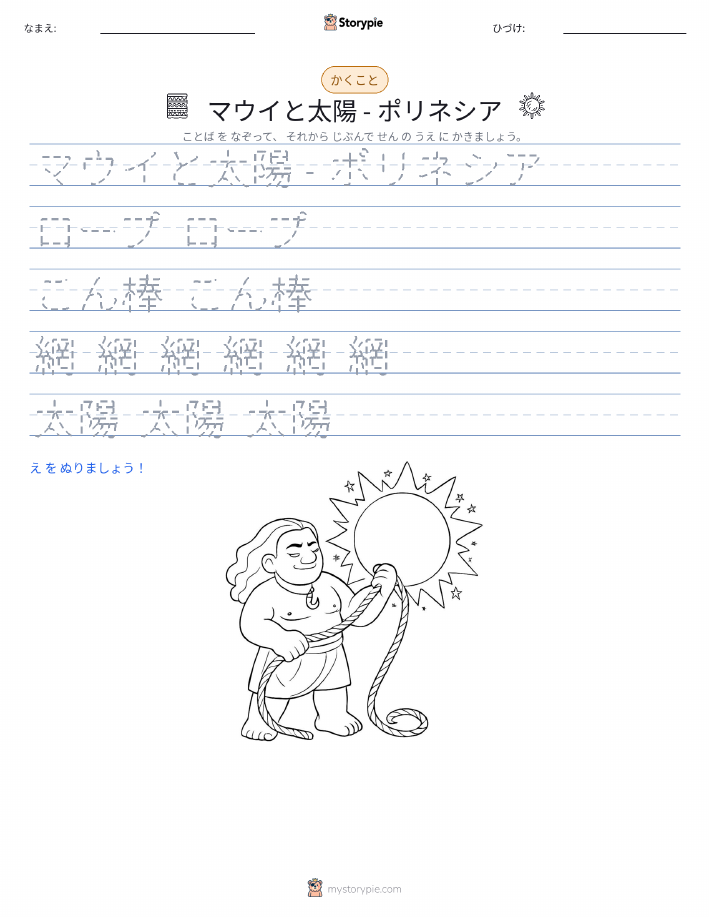 なまえ:
Storypie
ひづけ:
かくこと
マウイと太陽 - ポリネシア
ことば を なぞって、 それから じぶんで せん の うえ に かきましょう。
マウイと太陽 - ポリネシア
ロープ ロープ
こん棒 こん棒
網 網 網 網 網 網
太陽 太陽 太陽
え を ぬりましょう！
mystorypie.com